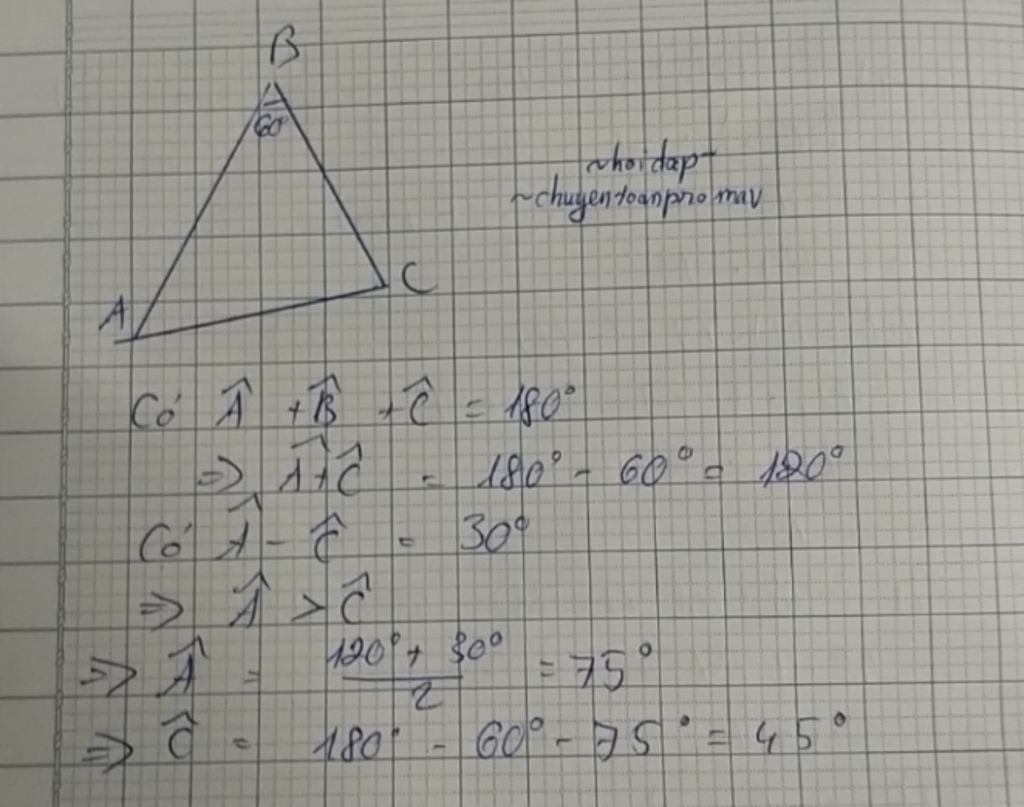 B
60°
~hoidap-
~chuyentoanpromav
A
C
Có Â + B̂ + Ĉ = 180°
=> Â + Ĉ = 180° - 60° = 120°
Có Â - Ĉ = 30°
=> Â > Ĉ
=> Â = (120° + 30°)/2 = 75°
=> Ĉ = 180° - 60° - 75° = 45°